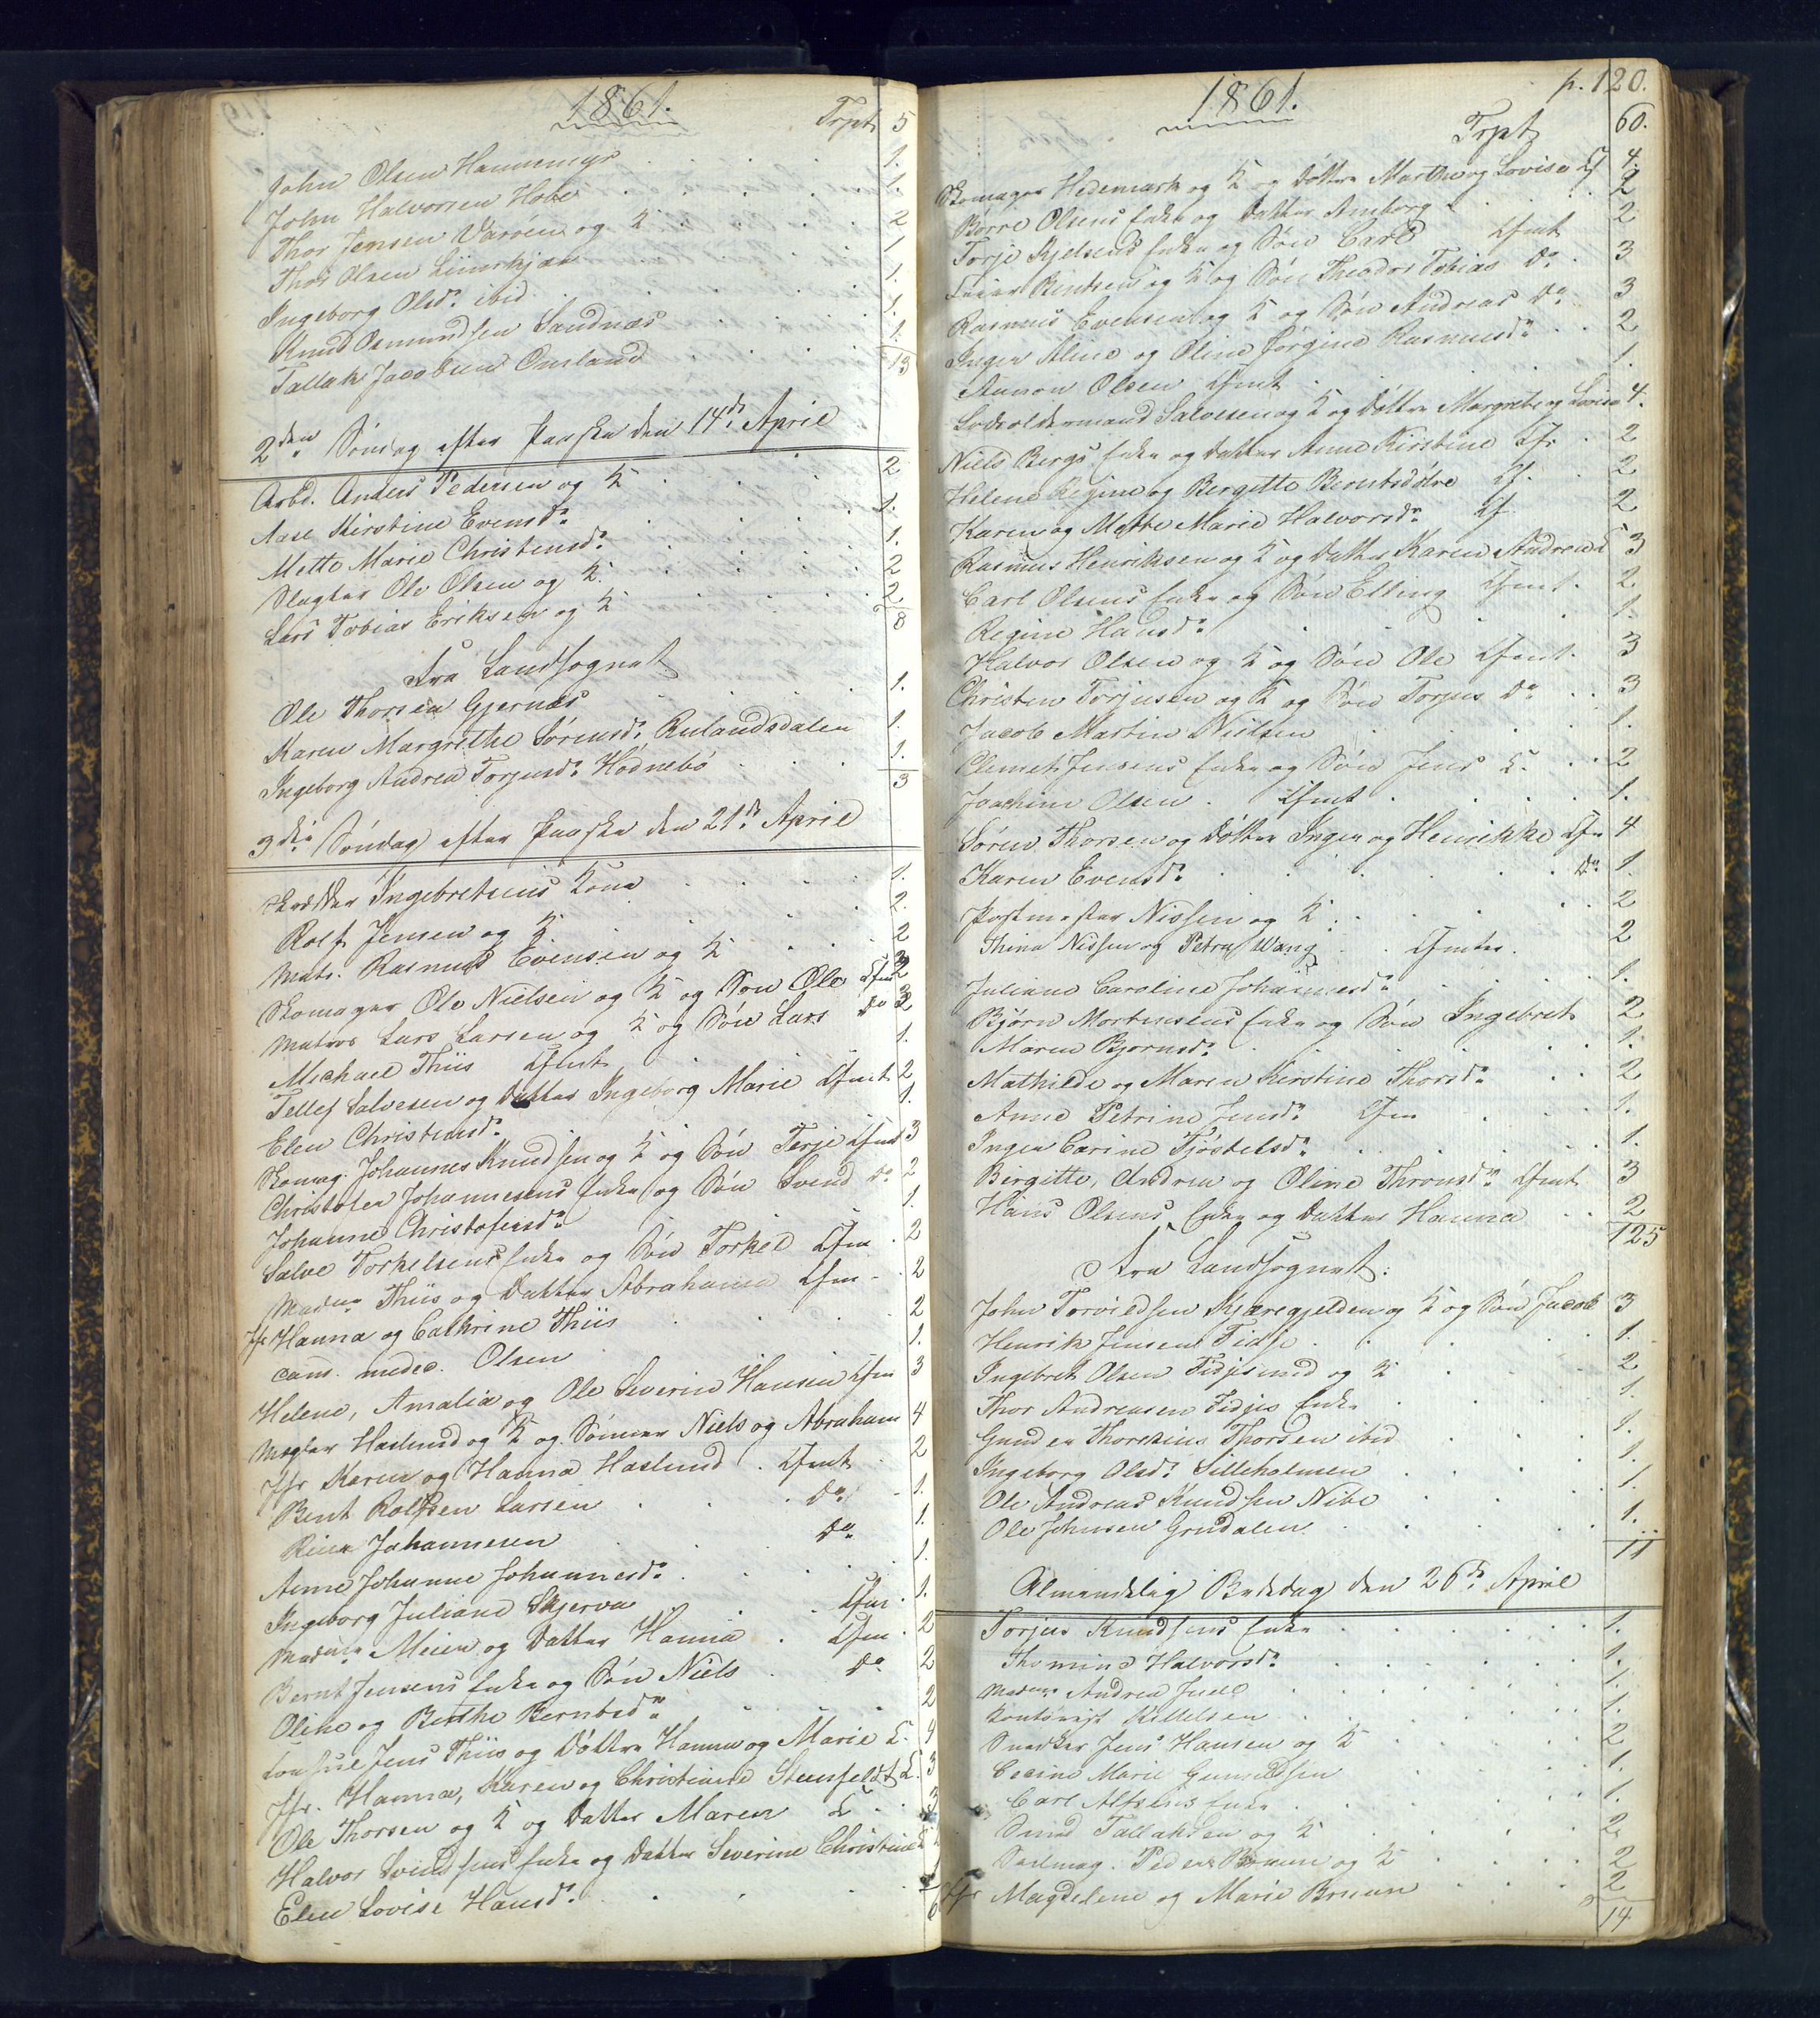 1861.
Trpt 5
John Olsen Hannemyr . . . 1.
John Halvorsen Hobe . . . 1.
Thor Jensen Varöen og K . . . 2
Thor Olsen Liimskjær . . . 1
Ingeborg Olsd. ibid . . . 1.
Knud Osmundsen Sandnæs . . . 1.
Tallak Jacobsen Omland . . . 1.
13
2den Söndag efter Paaske den 14de April
Arbd. Anders Pedersen og K . . . 2
Aase Kirstine Evensd. . . . 1.
Mette Marie Christensd. . . . 1.
Slagter Ole Olsen og K. . . . 2
Lars Tobias Eriksen og K . . . 2
8
Fra Landsognet
Ole Thorsen Gjernæs . . . 1.
Karen Margrethe Sörensd. Rulandsdalen 1.
Ingeborg Andrea Torjusd. Hödnebö . . . 1.
3
3die Söndag efter Paaske den 21de April
Skrædder Ingebretsens Kone . . . 1.
Rolf Jensen og K . . . 2.
Matr. Rasmus Evensen og K . . . 2
Skomager Ole Nielsen og K og Sön Ole Cfmt 3
Matros Lars Larsen og K og Sön Lars Do 3
Michael Thiis Cfmt . . . 1.
Tellef Salvesen og Datter Ingeborg Marie Cfmt 2
Elen Christensd. . . . 1.
Skomag. Johannes Knudsen og K og Sön Terje Cfmt 3
Christofer Johannesens Enke og Sön Svend Do 2
Johanne Christofersd. . . . 1.
Salve Torkelsens Enke og Sön Torkel Cfm . 2
Madme Thiis og Datter Abrahame Cfm . 2
Jfr Hanna og Cathrine Thiis . . . 2
cand. medec. Olsen . . . 1.
Helene, Amalia og Ole Severin Hansen Cfm 3
Mægler Haslund og K og Sönner Niels og Abraham 4
Jfr Karen og Hanna Haslund . Cfmt 2
Bent Rolfsen Larsen . . . Do . 1.
Rina Johannesen . . . Do 1.
Anne Johanne Johannesd. . . . 1.
Ingeborg Juliane Skjerva . . Cfm . 1.
Madme Meier og Datter Hanna . Cfm . 2
Bernt Jensens Enke og Sön Niels . Do 2
Oline og Berthe Berntsd. . . . 2
Consul Jens Thiis og Döttre Hanna og Marie C. 4
Jfr. Hanna, Karen og Christiane Steenfeldt C. 3
Ole Thorsen og K og Datter Maren C . . 3
Halvor Svendsens Enke og Datter Severine Christine C
Elen Lovise Hansd. . . .
1861.
p. 120.
Trpt 60.
Skomager Hedemark og K og Döttre Marthe og Lovise Cf 4.
Börre Olsens Enke og Datter Amborg . . . 2
Torje Kjelsens Enke og Sön Carl Cfmt 2
Bentsen og K og Sön Theodor Tobias Do . 3
Rasmus Evensen og K og Sön Andreas Do . 3
Inger Aline og Oline Jörgine Rasmusd. . . 2
Aanon Olsen Cfmt . . . 1.
Lodsoldermand Salvesen og K og Döttre Margrete og Lovise 4.
Niels Bergs Enke og Datter Anne Kirstine Cfr . 2
Helene Regine og Bergitte Berntsdötre Cf. . 2
Karen og Mette Marie Halvorsd. Cf 2
Rasmus Henriksen og K og Datter Karen Andrea C 3
Carl Olsens Enke og Sön Elling Cfmt . 2
Regine Hansd. . . . 1.
Halvor Olsen og K og Sön Ole Cfmt. 3
Christen Torjusen og K og Sön Torjus Do . . 3
Jacob Martin Nielsen . . . 1.
Clemet Jensens Enke og Sön Jens C. . . 2
Joachim Olsen . Cfmt . . . 1.
Sören Thorsen og Döttre Inger og Henrikke Cfm 4
Karen Evensd. . . . Do. 1.
Postmester Nissen og K . . . 2
Thina Nissen og Petra Wang . . Cfmts. 2
Juliane Caroline Johannesd. . . . 1.
Björn Mortensens Enke og Sön Ingebret 2
Maren Bjornsd. . . . 1.
Mathilde og Maren Kirstine Thorsd. . . 2
Anne Petrine Jensd. Cfm . . . 1.
Inger Carine Tjöstelsd. . . . 1.
Birgitte, Andrea og Oline Thronsd. Cfmt 3
Hans Olsens Enke og Datter Hanna . . 2
125
Fra Landsognet:
John Torvildsen Kjærregjelden og K og Sön Jacob 3
Henrik Jensen Fidje . . . 1.
Ingebret Olsen Fidjesund og K . . . 2
Thor Andreasen Fidjes Enke . . . 1.
Gunder Thorsens Thorsen ibid . . . 1.
Ingeborg Olsd. Silleholmen . . . 1.
Ole Andreas Knudsen Nibe . . . 1.
Ole Johnsen Grudalen . . . 1.
11
Almindelig Bededag den 26de April
Torjus Knudsens Enke . . . 1.
Thomine Halvorsd. . . . 1.
Madme Andrea Juell . . . 1.
Kittelsen . . . 1.
Snedker Jens Hansen og K . . . 2
Cecine Marie Gunuldsen . . . 1.
Carl Alfsens Enke . . . 1.
Svend Tallaksen og K . . . 2.
Seilmag. Peder Bruun og K . . . 2
Jfr Magdelene og Marie Bruun . . . 2
14